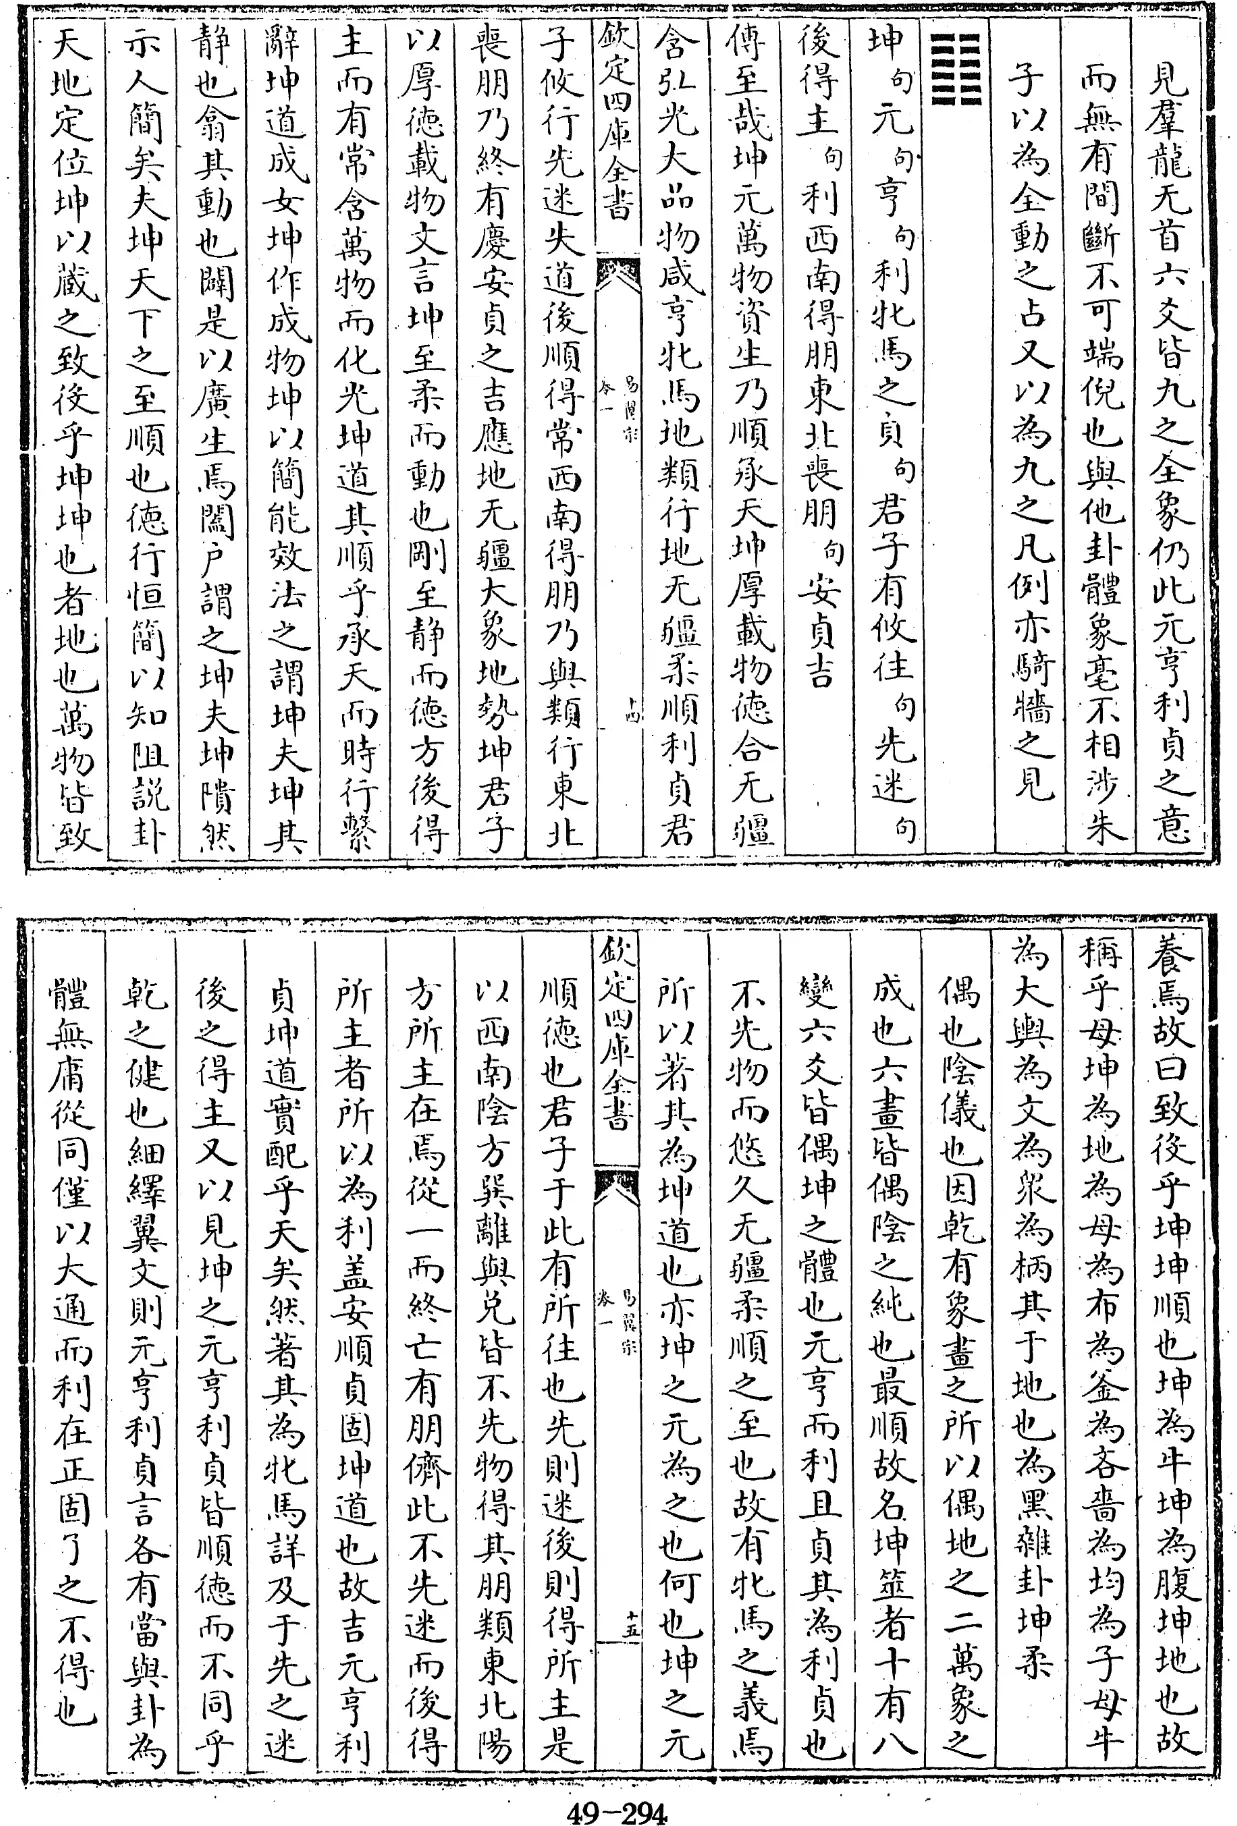 見羣龍无首六爻皆九之全象仍此元亨利貞之意
而無有間斷不可端倪也與他卦體象毫不相涉朱
子以為全動之占又以為九之凡例亦騎牆之見
坤句元句亨句利牝馬之貞句君子有攸往句先迷句
後得主句利西南得朋東北喪朋句安貞吉
傳至哉坤元萬物資生乃順承天坤厚載物德合无疆
含弘光大品物咸亨牝馬地類行地无疆柔順利貞君
欽定四庫全書
卷一
十四
子攸行先迷失道後順得常西南得朋乃與類行東北
喪朋乃終有慶安貞之吉應地无疆大象地勢坤君子
以厚德載物文言坤至柔而動也剛至静而德方後得
主而有常含萬物而化光坤道其順乎承天而時行繫
辭坤道成女坤作成物坤以簡能效法之謂坤夫坤其
静也翕其動也闢是以廣生焉闔户謂之坤夫坤隤然
示人簡矣夫坤天下之至順也德行恒簡以知阻説卦
天地定位坤以藏之致役乎坤坤也者地也萬物皆致
養焉故曰致役乎坤坤順也坤為牛坤為腹坤地也故
稱乎母坤為地為母為布為釜為吝嗇為均為子母牛
為大輿為文為衆為柄其于地也為黑雜卦坤柔
偶也陰儀也因乾有象畫之所以偶地之二萬象之
成也六畫皆偶陰之純也最順故名坤筮者十有八
變六爻皆偶坤之體也元亨而利且貞其為利貞也
不先物而悠久无疆柔順之至也故有牝馬之義焉
所以著其為坤道也亦坤之元為之也何也坤之元
欽定四庫全書
卷一
十五
順德也君子于此有所往也先則迷後則得所主是
以西南陰方巽離與兌皆不先物得其朋類東北陽
方所主在焉從一而終亡有朋儕此不先迷而後得
所主者所以為利盖安順貞固坤道也故吉元亨利
貞坤道實配乎天矣然著其為牝馬詳及于先之迷
後之得主又以見坤之元亨利貞皆順德而不同乎
乾之健也細繹翼文則元亨利貞言各有當與卦為
體無庸從同僅以大通而利在正固了之不得也
49-294